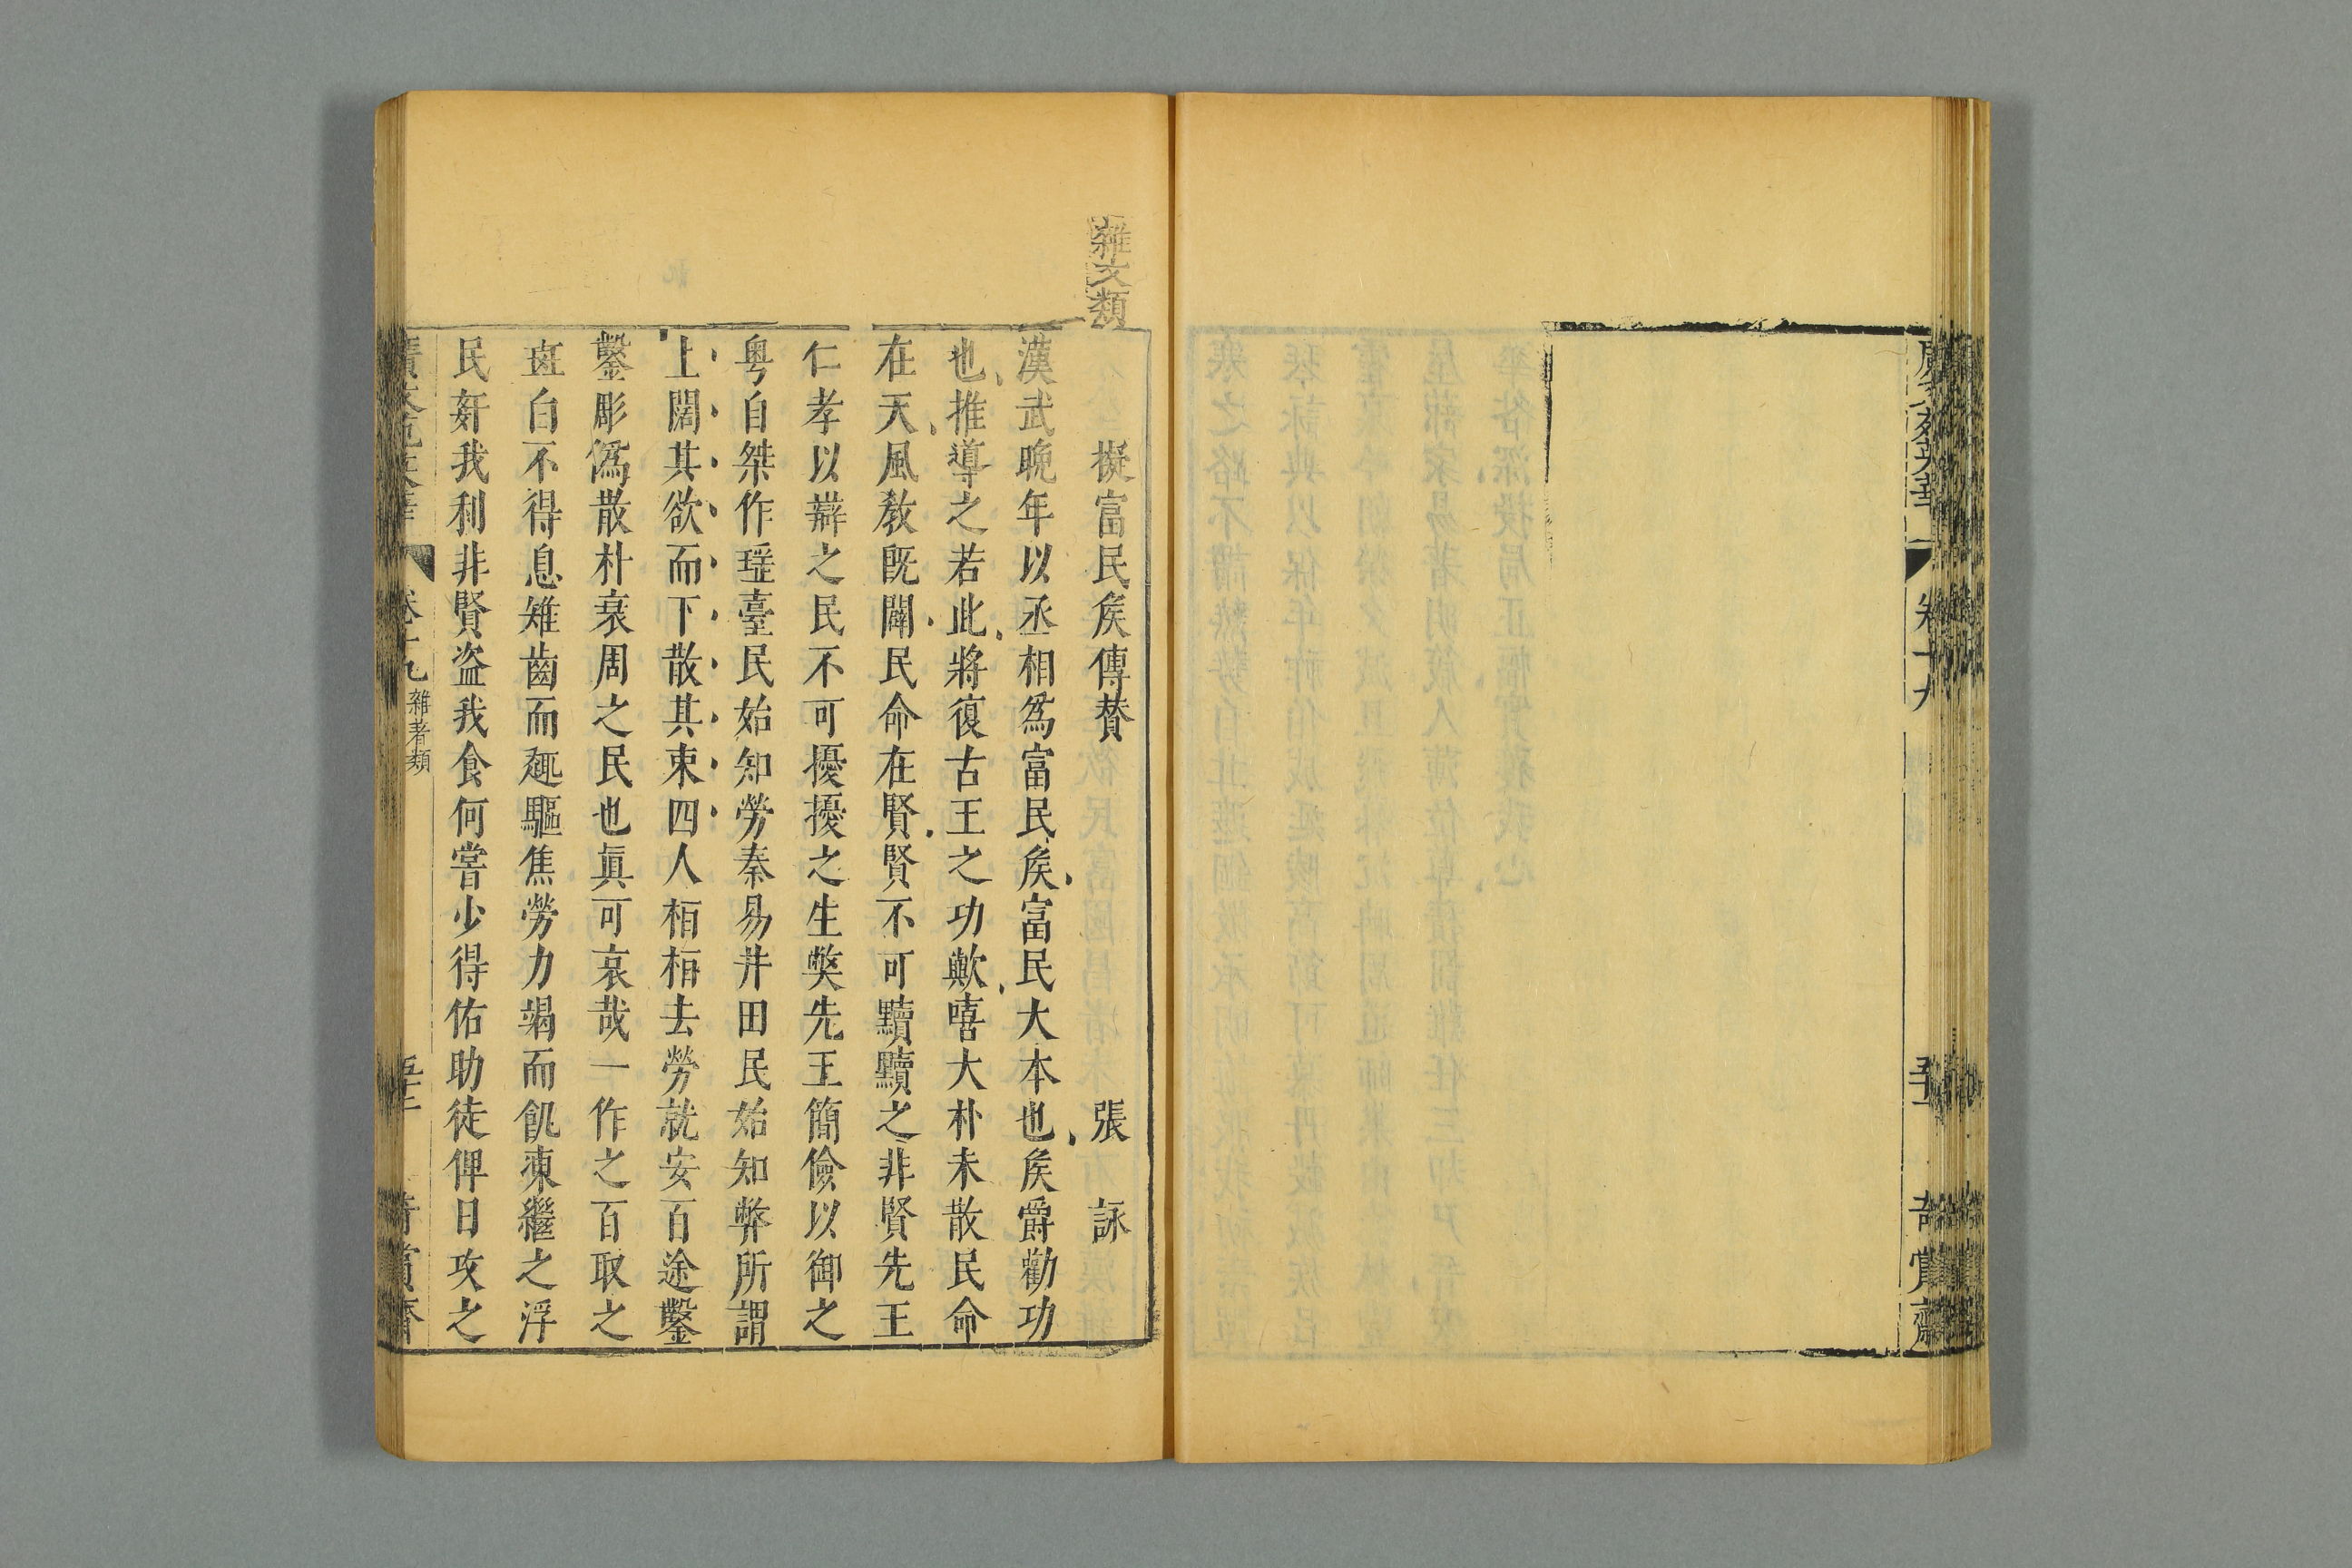 雜文類
擬富民矦傳贊 張 詠
漢武晚年以丞相爲富民矦富民大本也矦爵勸功
也推導之若此將復古王之功歟嘻大朴未散民命
在天風敎旣闡民命在賢賢不可黷黷之非賢先王
仁孝以辯之民不可擾擾之生獘先王簡儉以御之
粤自桀作瑶臺民始知勞秦易井田民始知弊所謂
上闊其欲而下散其束四人栢栢去勞就安百途鑿
鑿彫僞散朴衰周之民也眞可哀哉一作之百取之
斑白不得息雉齒而趣驅焦勞力竭而飢凍繼之浮
民奸我利非賢盗我食何嘗少得佑助徒俾日攻之
卷十九 雜著類
奇賞齋
卷十九
奇賞齋